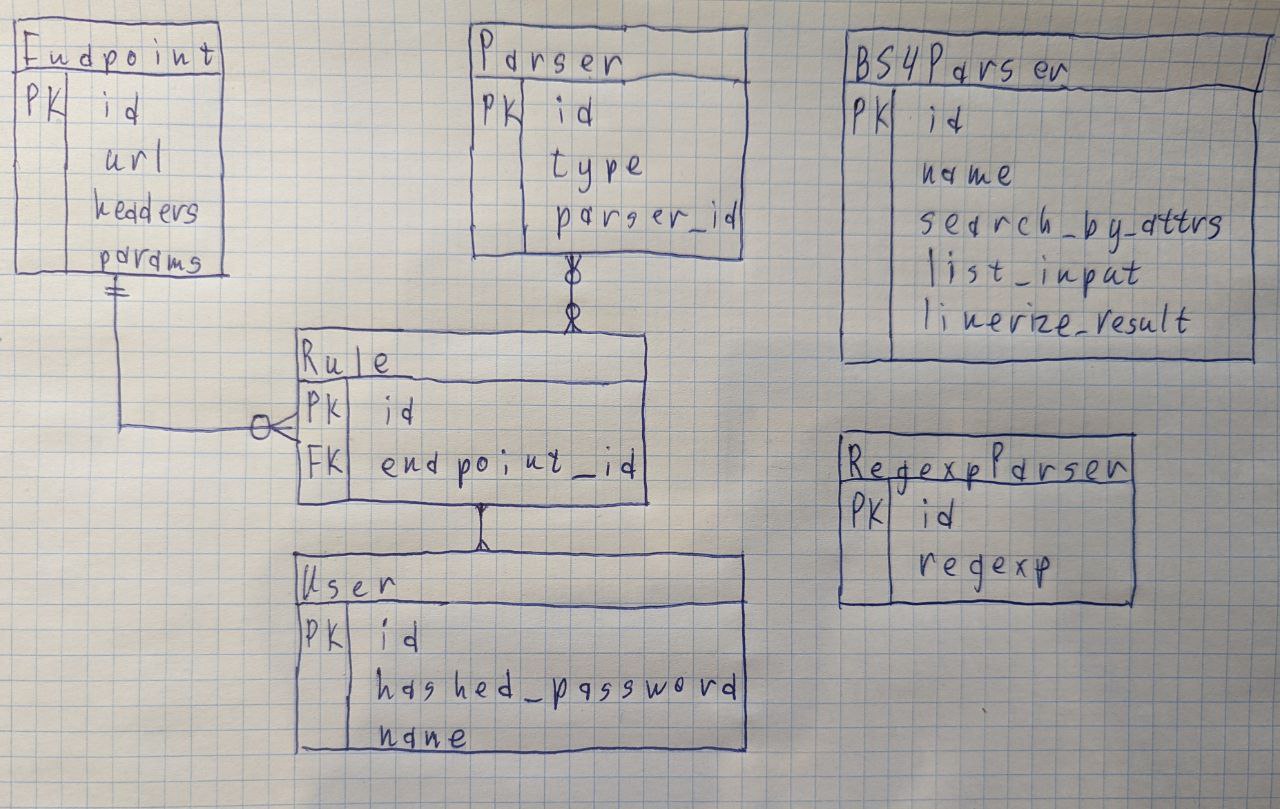 Endpoint
PK id
url
headers
params
Parser
PK id
type
parser_id
BS4Parser
PK id
name
search_by_attrs
list_input
linerize_result
Rule
PK id
FK endpoint_id
RegexpParser
PK id
regexp
User
PK id
hashed_password
name